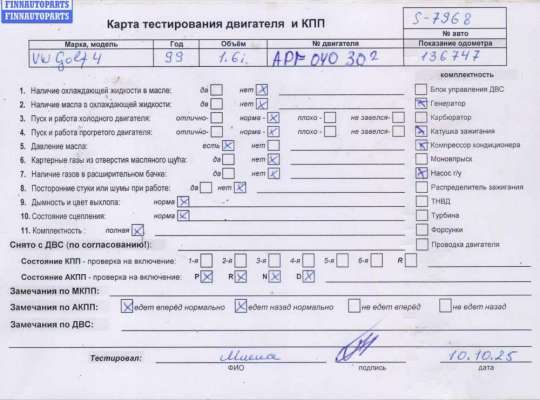 FINNAUTOPARTS
FINNAUTOPARTS
Карта тестирования двигателя и КПП
S-7968
№ авто
Марка, модель Год Объём № двигателя Показание одометра
VW Golf 4 99 1.6i APF 040 302 136747
комплектность
1. Наличие охлаждающей жидкости в масле: да нет Блок управления ДВС
2. Наличие масла в охлаждающей жидкости: да нет Генератор
3. Пуск и работа холодного двигателя: отлично- норма - плохо - не завелся- Карбюратор
4. Пуск и работа прогретого двигателя: отлично- норма - плохо - не завелся- Катушка зажигания
5. Давление масла: есть нет Компрессор кондиционера
6. Картерные газы из отверстия масляного щупа: да нет Моновпрыск
7. Наличие газов в расширительном бачке: да нет Насос г/у
8. Посторонние стуки или шумы при работе: да нет Распределитель зажигания
9. Дымность и цвет выхлопа: норма ТНВД
10. Состояние сцепления: норма Турбина
11. Комплектность : полная Форсунки
Снято с ДВС (по согласованию!): Проводка двигателя
Состояние КПП - проверка на включение: 1-я 2-я 3-я 4-я 5-я 6-я R
Состояние АКПП - проверка на включение: P R N D
Замечания по МКПП:
Замечания по АКПП: едет вперёд нормально едет назад нормально не едет вперёд не едет назад
Замечания по ДВС:
Тестировал: Миша 10.10.25
ФИО подпись дата